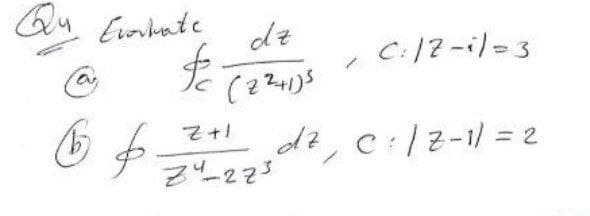 Qu Evaluate
(a) ∮_C dz/(z²+1)³ , C: |z-i|=3
(b) ∮ z+1/z⁴-2z³ dz, C: |z-1| = 2